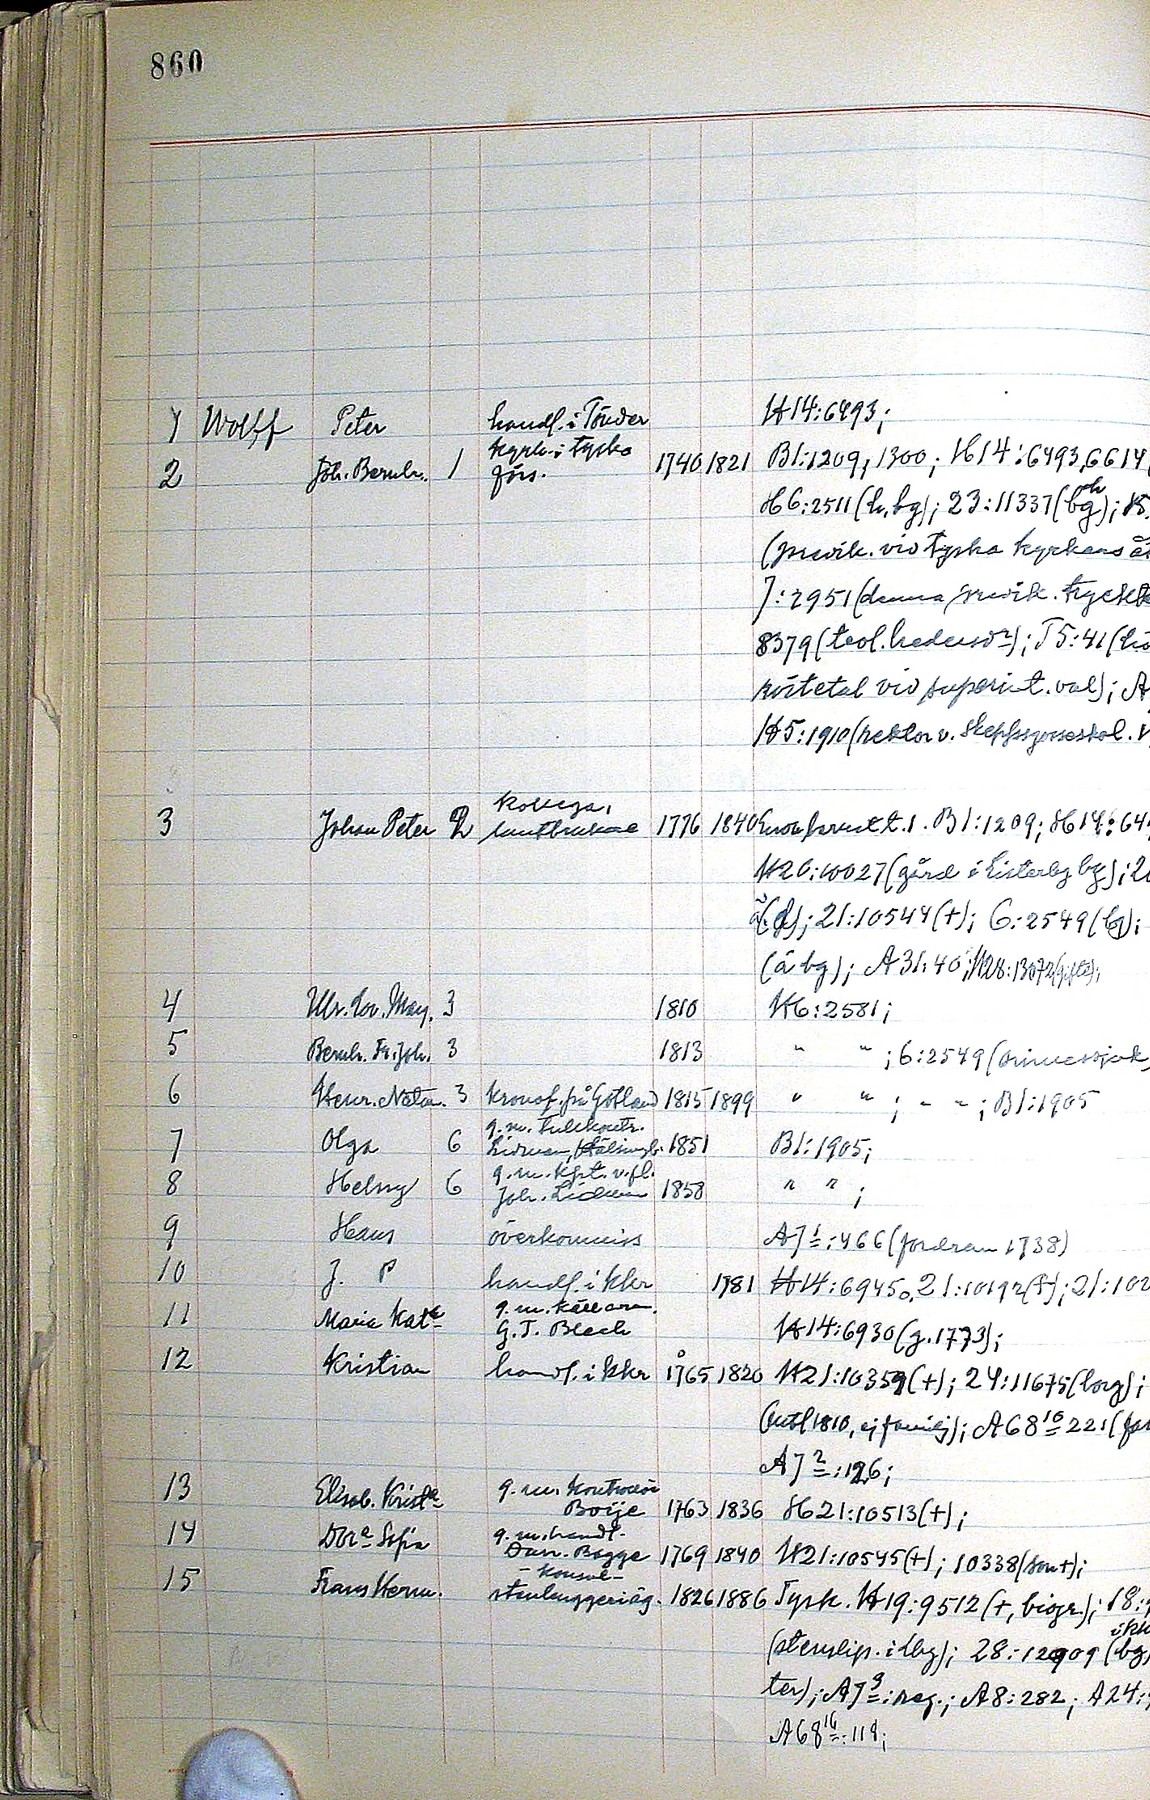 860
1 Wolff Peter handl. i Tönder H14:6493;
2 Joh. Bernh. 1 kyrkh. i tyska förs. 1740 1821 B1:1209, 1300; H14:6493, 6614
H6:2511 (h, bg); 23:11337 (bg);
(predik. vid tyska kyrkans
7:2951 (denna predik. tryckt
8379 (teol. hedersdr); T5:41 (
röstetal vid superint. val); A
H5:1910 (rektor v. Skeppsgosseskol.
3 Johan Peter 2 kollega, lantbrukare 1776 1840 B1:1209; H14:64
H26:10027 (gård i Listerby bg);
21:10544 (+); 6:2549 (bg);
(å bg); A31:40; H28:13072 (gifte);
4 Ulr. Lov. Marg. 3 1810 H6:2581;
5 Bernh. Fr. Joh. 3 1813 " " ; 6:2549 (sinnessjuk,
6 Henr. Natan. 3 kronof. på Gotland 1815 1899 " " ; " " ; B1:1905
7 Olga 6 g.m. tullkontr. Lidman, Hälsingb. 1851 B1:1905;
8 Helmy 6 g.m. kpt. v. fl. Joh. Lidman 1858 " " ;
9 Hans överkommiss A7 1:466 (fordran 1738)
10 J. P handl. i kkr 1781 H14:6945, 21:10192 (+); 21:102
11 Maria Kata g.m. källarm. G.T. Blech H14:6930 (g. 1773);
12 Kristian handl. i kkr 1765 1820 H21:10359 (+); 24:11675 (borg);
1810, ej familj); A68 16 221 (
A7 2:126;
13 Elisab. Krista g.m. kontrollör Boije 1763 1836 H21:10513 (+);
14 Dora Sofia g.m. handl. Dan. Bagge 1769 1840 H21:10545 (+); 10338 (son +);
15 Frans Herm. konsul stenhuggeriäg. 1826 1886 Tysk. H19:9512 (+, biogr.); 18:
(stenslip. i bg); 28:12909 (bg
ter); A7 3:reg.; A8:282; A24:
A68 16:118;